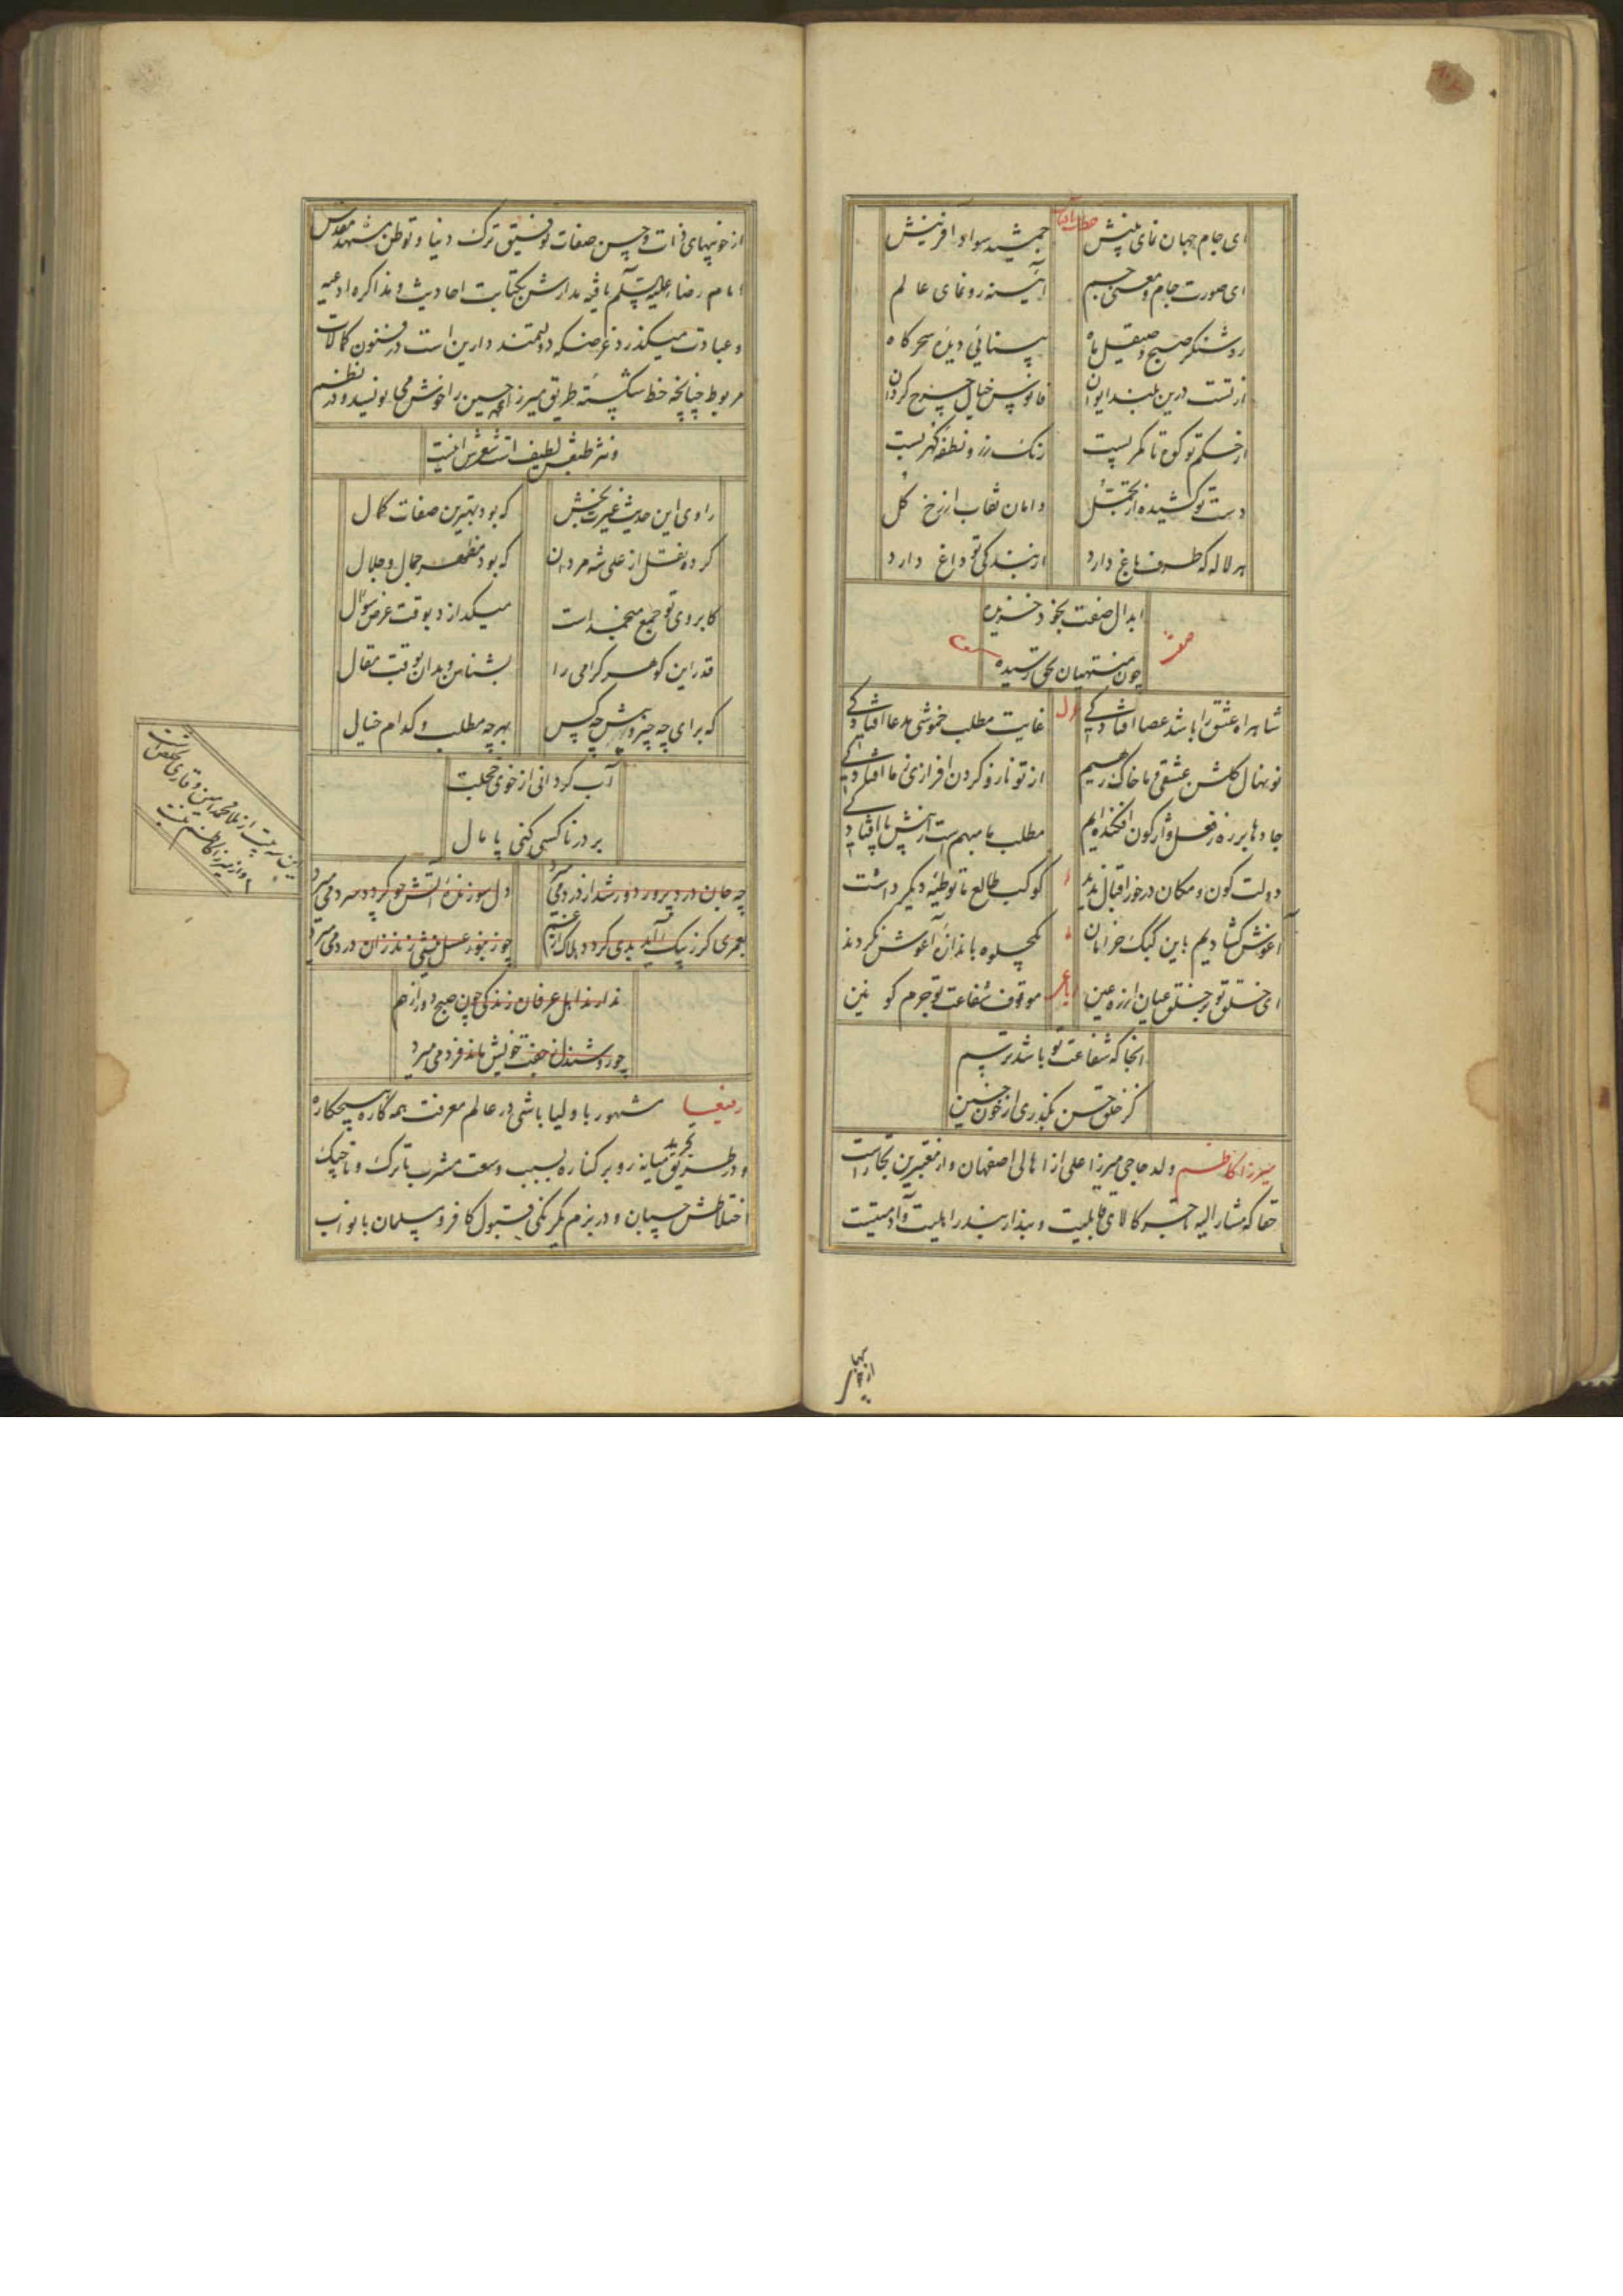 ای جام جهان نمای بینش جمشید سواد افرینش
ای صورت جام و معنی جم آیینه رونمای عالم
روشنگر صبح و صیقل ماه بینائی دیده سحرکاه
از تست درین بلند ایوان فانوس خیال چرخ کردان
از حکم تو کوه تا کمر بست رنک زر و نطفه کهر بست
دست تو کشیده از تجمل دامان نقاب از رخ کل
هر لاله که طرف باغ دارد از بندکی تو داغ دارد
ابدال صفت بخود خزیده
چون منتهیان بحق رسیده
شاهراه عشق را باشد عصا افتادکی غایت مطلب خموشی مدعا افتادکی
نونهال کلشن عشقی ما خاک رهیم از تو ناز و کردن افرازی ز ما افتادکی
جادها بر ره ز نعل واژکون افکنده ایم مطلب ما مبهم است از پیش پا افتادکی
دولت کون و مکان در خور اقبال ندید کوکب طالع ما توطئه دیکر داشت
آغوش کشادیم باین کبک خرامان یکجلوه باندازه آغوش نکردند
ای خلق تو بر خلق عیان ارزه عین موقوف شفاعت تو جرم کونین
انجا که شفاعت تو باشد ترسم
کز خلق حسن بکذری از خون حسین
میرزا کاظم ولد حاجی میرزا علی از اهالی اصفهان و از معتبرین تجار است
حقا که مشار الیه تاجر کالای قابلیت و بندار بندر اهلیت و آدمیتیست
از خوبیهای ذات و حسن صفات توفیق ترک دنیا و توطن مشهد مقدس
امام رضا علیه السلم یافته مدارش بکتابت احادیث و مذاکره ادعیه
و عبادت میکذرد غرضکه دولتمند دارین است در فنون کمالات
مربوط چنانچه خط شکسته طریق میرزا حسین را خوش می نویسد و در نظم
و نثر طبعش لطیف است شعرش اینست
راوی این حدیث غیرت بخش که بود بهترین صفات کمال
کرده نقل از علی شه مردان که بود مظهر جمال و جلال
کابروی تو جمع منجمد است میکدازد بوقت عرض سؤال
قدر این کوهر کرامی را بشناس و بدان بوقت مقال
که برای چه چیز و پیش چه کس بهر چه مطلب و کدام خیال
آب کردانی از خوی خجلت
بر در ناکسی کنی پامال
این سه بیت از ملا محمد امین وقاری تخلص است
و از میرزا کاظم نیست
دل سوزنده آتش چو کردد سرد می میرد
ندارند اهل عرفان زندکی چون صبح دور از هم
چو روشندل ز جفت خویش ماند فرد می میرد
رفیعا مشهور با ولیا باشی در عالم معرفت همه کاره هیچکاره
و در طریق میانه رو بر کناره بسبب وسعت مشرب با ترک و تاجیک
اختلاطش چسپان و در بزم یکرنکی قبول کافر و مسلمان با نواب